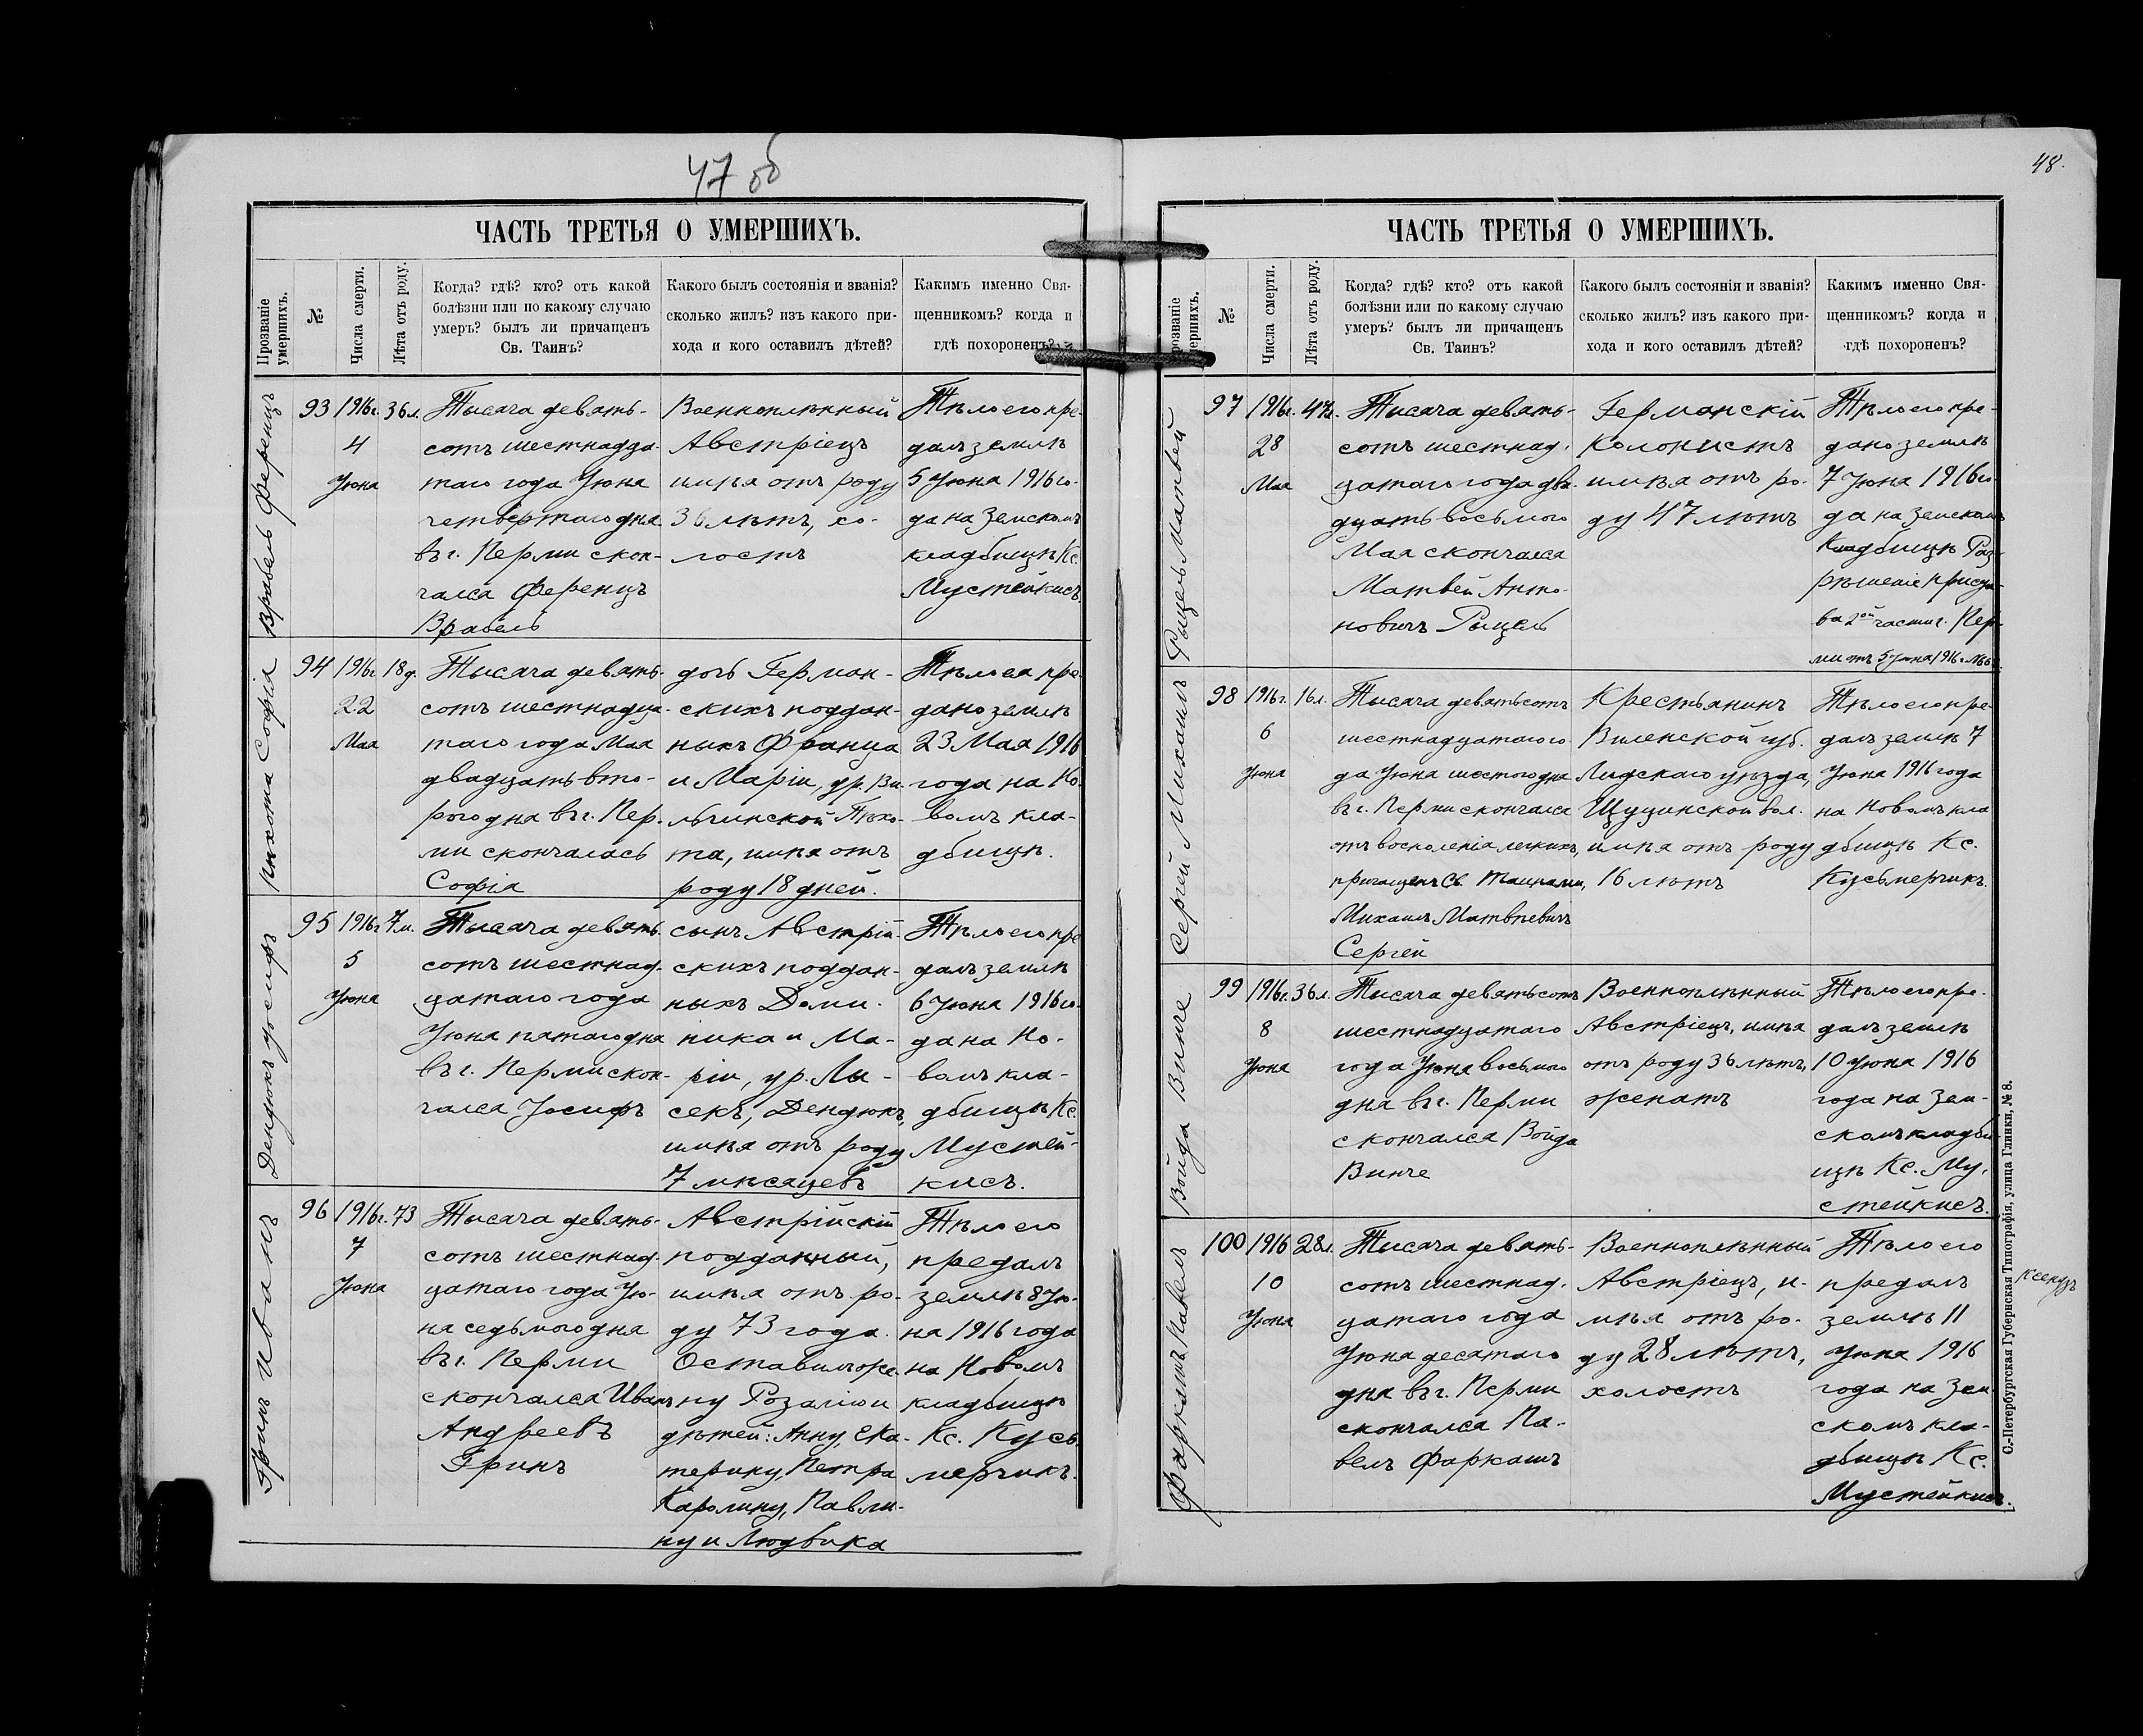 47 об
ЧАСТЬ ТРЕТЬЯ О УМЕРШИХЪ.
Прозваніе умершихъ.
№
Числа смерти.
Лѣта отъ роду.
Когда? гдѣ? кто? отъ какой
болѣзни или по какому случаю
умеръ? былъ ли причащенъ
Св. Таинъ?
Какого былъ состоянія и званія?
сколько жилъ? изъ какого при-
хода и кого оставилъ дѣтей?
Какимъ именно Свя-
щенникомъ? когда и
гдѣ похороненъ?
Врабель Ференцъ
93
1916г.
4
Іюня
36л.
Тысяча девять-
сотъ шестнадца-
таго года Іюня
четвертаго дня
въ г. Перми скон-
чался Ференцъ
Врабель
Военноплѣнный
Австріецъ
имѣя отъ роду
36 лѣтъ, хо-
лостъ
Тѣло его пре-
далъ землѣ
5 Іюня 1916 го-
да на Земскомъ
кладбищѣ Кс.
Мустейкисъ.
Пихота Софія
94
1916г
22
Мая
18д.
Тысяча девять-
сотъ шестнадца-
таго года Мая
двадцать вто-
рого дня въ г. Пер-
ми скончалась
Софія
дочь Герман-
скихъ поддан-
ныхъ Франца
и Маріи, ур. Ви-
льчинской Пихо-
та, имѣя отъ
роду 18 дней.
Тѣло ея пре-
дано землѣ
23 Мая 1916
года на Но-
вомъ кла-
дбищѣ.
Дендюкъ Іосифъ
95
1916г
5
Іюня
7м.
Тысяча девять-
сотъ шестнад-
цатаго года
Іюня пятаго дня
въ г. Перми скон-
чался Іосифъ
сынъ Австрій-
скихъ поддан-
ныхъ Доми-
ника и Ма-
ріи, ур. Лы-
секъ, Дендюкъ,
имѣя отъ роду
7 мѣсяцевъ
Тѣло его пре
далъ землѣ
6 Іюня 1916 го-
да на Но-
вомъ кла-
дбищѣ Кс.
Мустей-
кисъ.
Гринъ Иванъ
96
1916г.
7
Іюня
73
Тысяча девять-
сотъ шестнад-
цатаго года Ію-
на седьмого дня
въ г. Перми
скончался Иванъ
Андреевъ
Гринъ
Австрійскій
подданный,
имѣя отъ ро-
ду 73 года.
Оставилъ же-
ну Розалію и
дѣтей: Анну, Ека-
терину, Петра
Каролину, Павли-
ну и Людвика
Тѣло его
предалъ
землѣ 8 Ію-
на 1916 года
на Новомъ
кладбищѣ
Кс. Кусь-
мерчикъ.
48.
ЧАСТЬ ТРЕТЬЯ О УМЕРШИХЪ.
Прозваніе умершихъ.
№
Числа смерти.
Лѣта отъ роду.
Когда? гдѣ? кто? отъ какой
болѣзни или по какому случаю
умеръ? былъ ли причащенъ
Св. Таинъ?
Какого былъ состоянія и званія?
сколько жилъ? изъ какого при-
хода и кого оставилъ дѣтей?
Какимъ именно Свя-
щенникомъ? когда и
гдѣ похороненъ?
Рыцель Матвей
97
1916г.
28
Мая
47л.
Тысяча девять-
сотъ шестнад-
цатаго года два-
дцать восьмого
Мая скончался
Матвей Анто-
новичъ Рыцель
Германскій
Колонистъ
имѣя отъ ро-
ду 47 лѣтъ
Тѣло его пре-
дано землѣ
7 Іюня 1916 го
да на Земскомъ
Кладбищѣ Раз-
рѣшеніе приста-
ва 2ой части г. Пер-
ми отъ 5 Іюня 1916 г.
Сергей Михаилъ
98
1916г.
6
Іюня
16л.
Тысяча девятьсотъ
шестнадцатаго го-
да Іюня шестого дня
въ г. Перми скончался
отъ воспаленія легкихъ,
причащенъ Св. Таинами,
Михаилъ Матвѣевичъ
Сергей
Крестьянинъ
Виленской губ.
Лидскаго уѣзда,
Щучинской вол.
имѣя отъ роду
16 лѣтъ
Тѣло его пре-
далъ землѣ 7
Іюня 1916 года
на Новомъ кла
дбищѣ Кс.
Кусьмерчикъ.
Войда Винче
99
1916г.
8
Іюня
36л.
Тысяча девятьсотъ
шестнадцатаго
года Іюня восьмого
дня въ г. Перми
скончался Войда
Винче
Военноплѣнный
Австріецъ, имѣя
отъ роду 36 лѣтъ,
женатъ
Тѣло его пре-
далъ землѣ
10 Іюня 1916
года на Зем-
скомъ кладби-
щѣ Кс. Му-
стейкисъ.
Фаркашъ Павелъ
100
1916
10
Іюня
28л.
Тысяча девять-
сотъ шестнад-
цатаго года
Іюня десятаго
дня въ г. Перми
скончался Па-
велъ Фаркашъ
Военноплѣнный
Австріецъ, и-
мѣя отъ ро-
ду 28 лѣтъ,
холостъ
Тѣло его
предалъ
землѣ 11
Іюня 1916
года на Зем
скомъ кла-
дбищѣ Кс.
Мустейкисъ.
Ксендзъ
С.-Петербургская Губернская Типографія, улица Глинки, № 8.